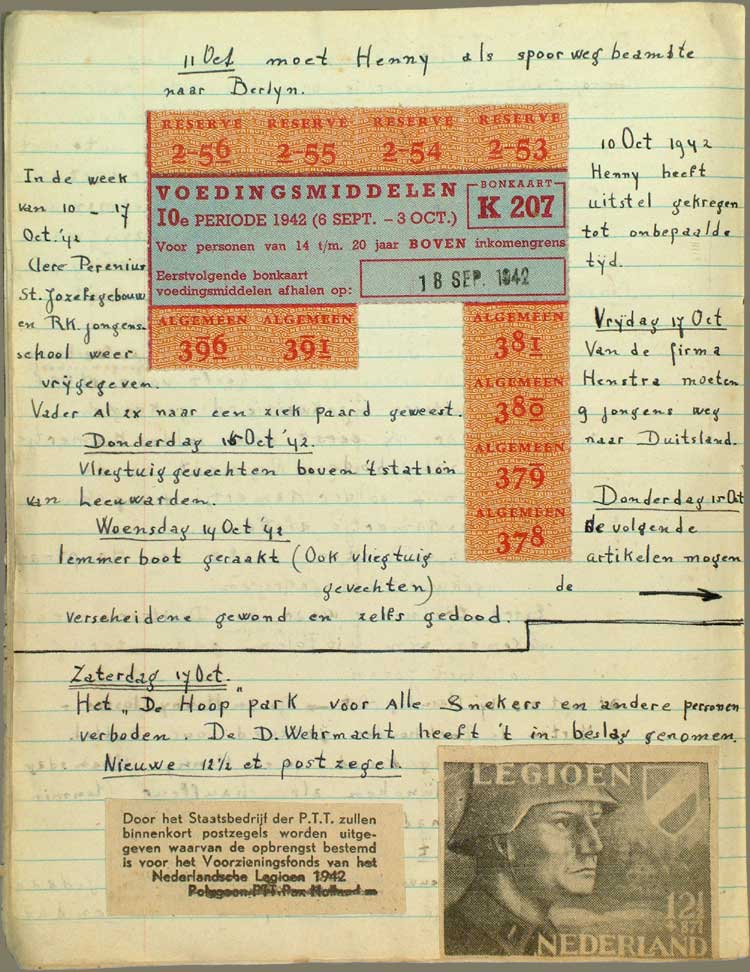 11 Oct moet Henny als spoorwegbeambte
naar Berlyn.
In de week
van 10 - 17
Oct. '42
Clere Perenius
St. Jozefsgebouw
en R.K. jongens-
school weer
vrijgegeven.
Vader al 2x naar een ziek paard geweest.
Donderdag 15 Oct '42.
Vliegtuiggevechten boven 't station
van Leeuwarden.
Woensdag 14 Oct '42
Lemmerboot geraakt (Ook vliegtuig
gevechten)
verscheidene gewond en zelfs gedood.
RESERVE RESERVE RESERVE RESERVE
2-56 2-55 2-54 2-53
VOEDINGSMIDDELEN
10e PERIODE 1942 (6 SEPT. – 3 OCT.)
BONKAART
K 207
Voor personen van 14 t/m. 20 jaar BOVEN inkomengrens
Eerstvolgende bonkaart
voedingsmiddelen afhalen op:
18 SEP. 1942
ALGEMEEN ALGEMEEN
396 391
ALGEMEEN
381
ALGEMEEN
380
ALGEMEEN
379
ALGEMEEN
378
10 Oct 1942
Henny heeft
uitstel gekregen
tot onbepaalde
tijd.
Vrijdag 17 Oct
Van de firma
Henstra moeten
9 jongens weg
naar Duitsland.
Donderdag 15 Oct
De volgende
artikelen mogen
de
Zaterdag 17 Oct.
Het „De Hoop" park voor alle Snekers en andere personen
verboden. De D. Wehrmacht heeft 't in beslag genomen.
Nieuwe 12½ ct postzegel.
Door het Staatsbedrijf der P.T.T. zullen
binnenkort postzegels worden uitge-
geven waarvan de opbrengst bestemd
is voor het Voorzieningsfonds van het
Nederlandsche Legioen 1942
LEGIOEN
12½
+87½
NEDERLAND